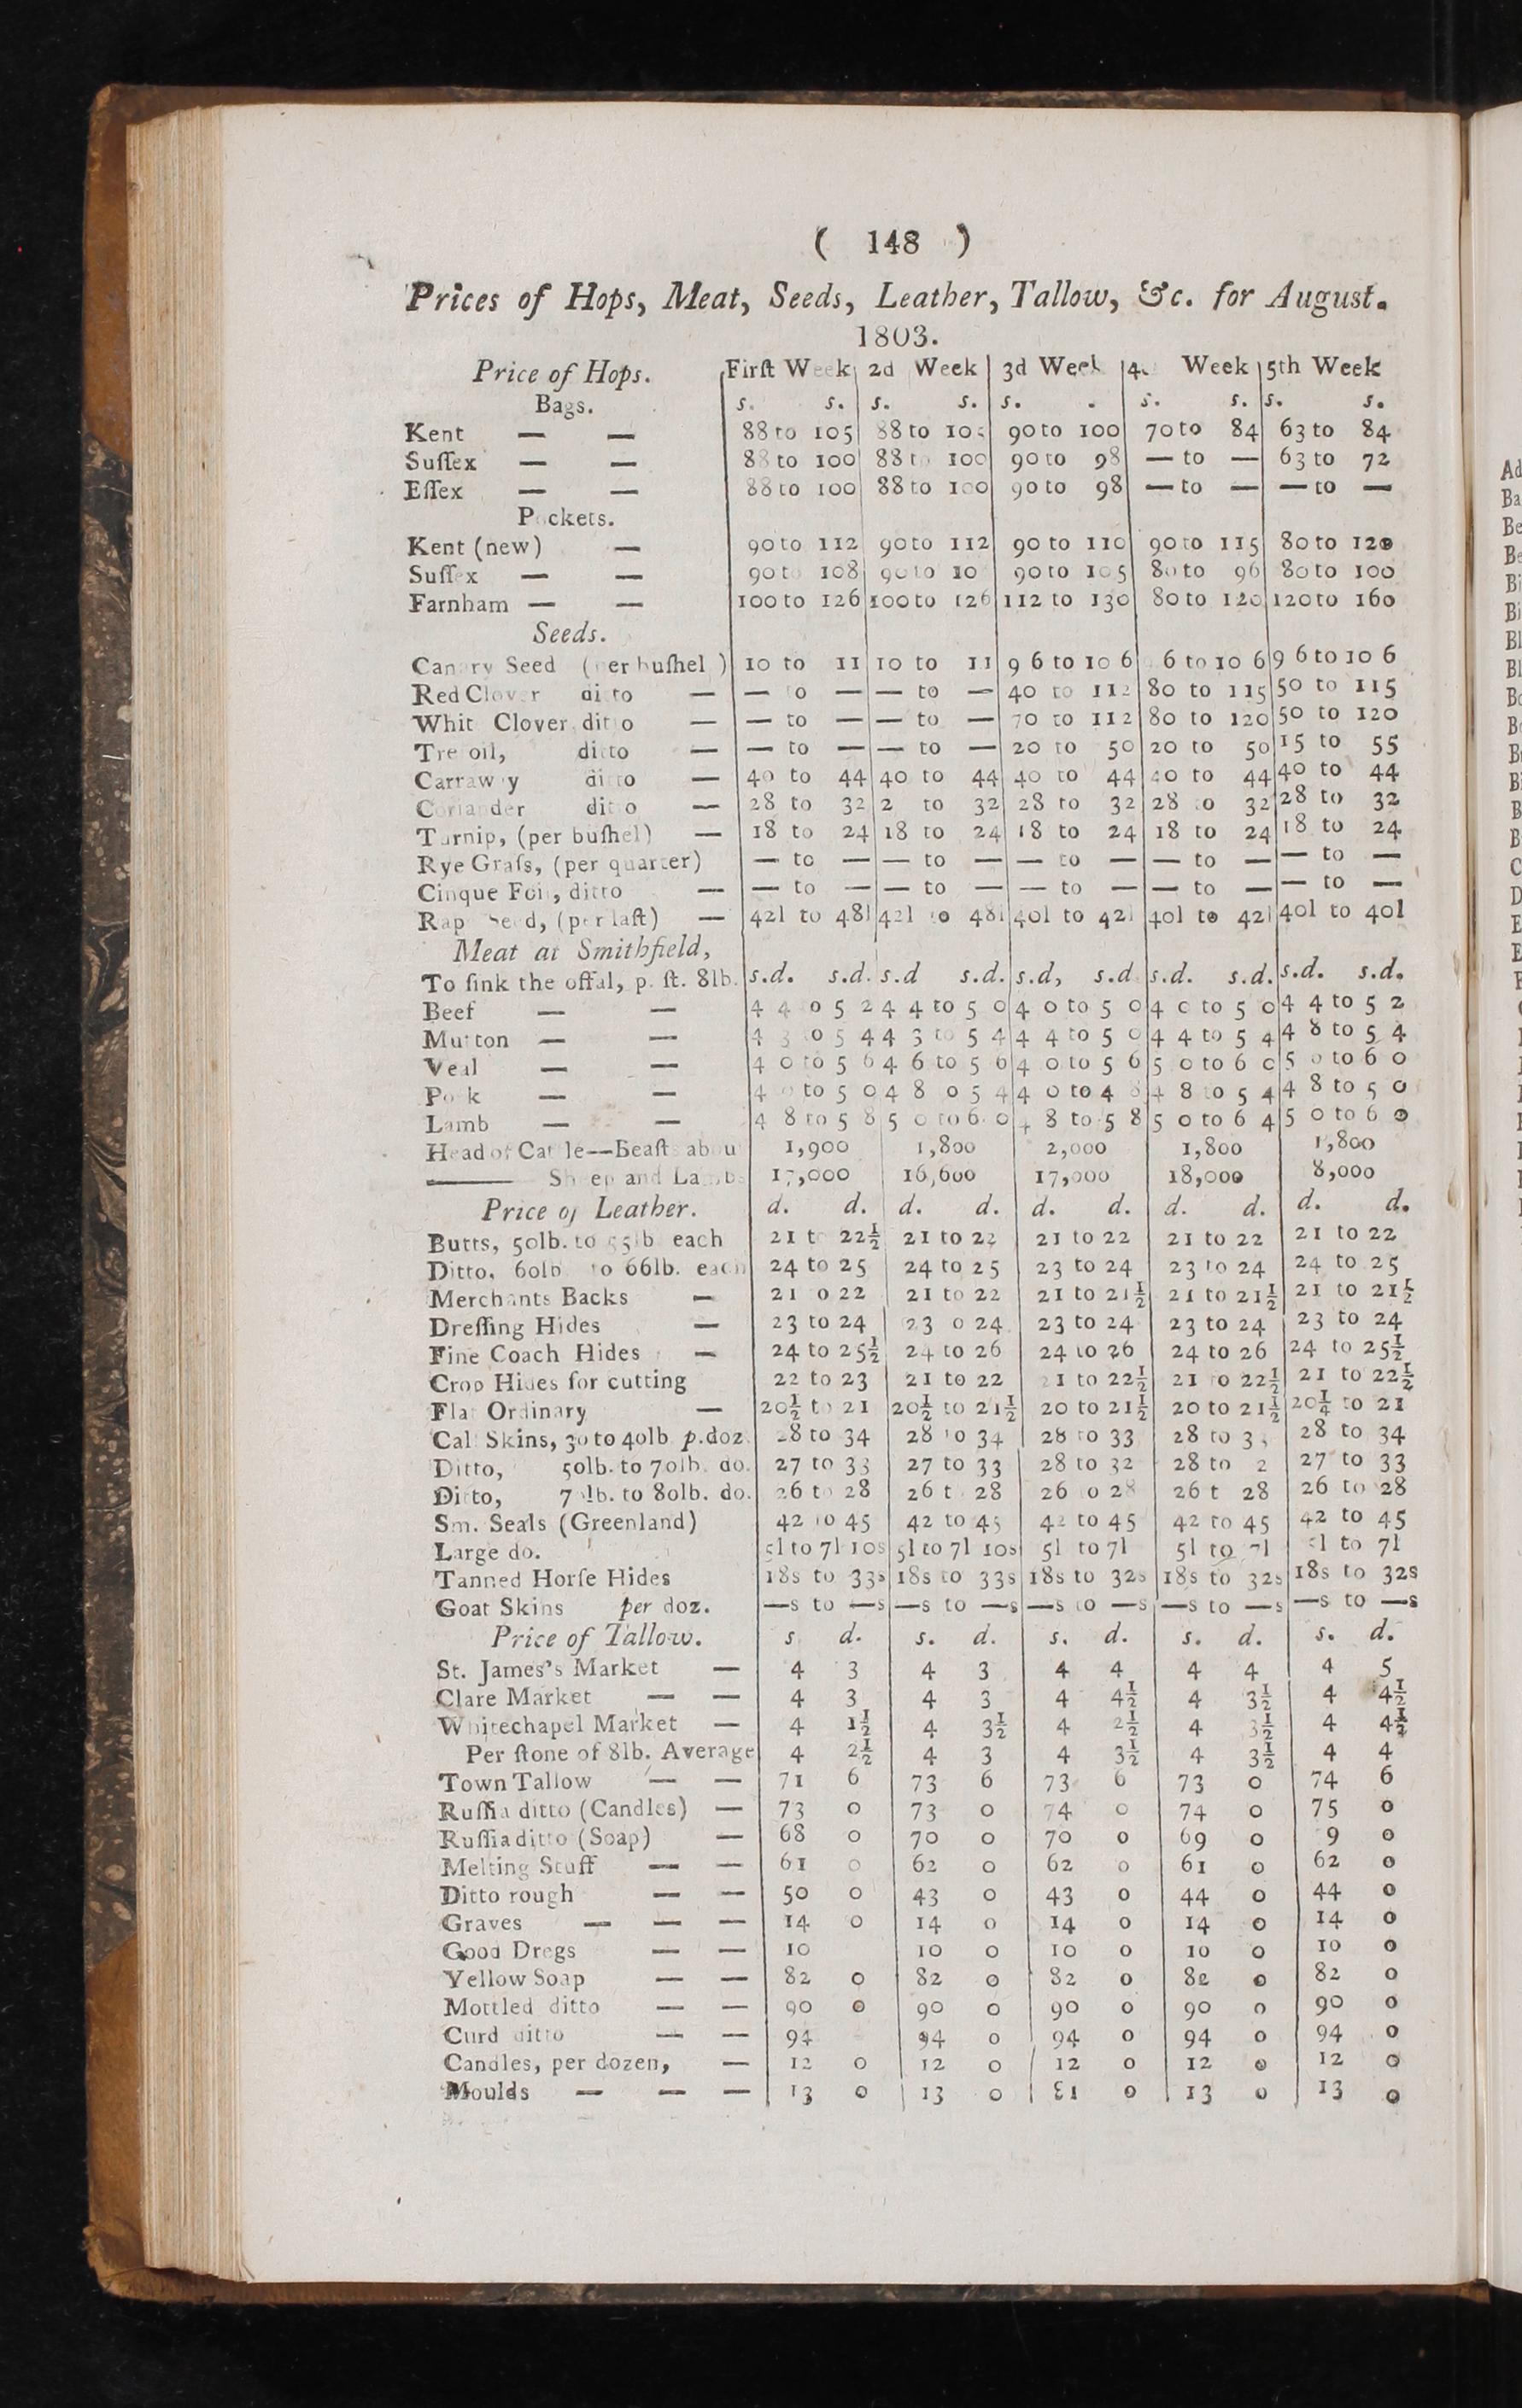 ( 148 )
Prices of Hops, Meat, Seeds, Leather, Tallow, &c. for August.
1803.
Price of Hops. First Week 2d Week 3d Week Week 5th Week
Bags. s. s. s. s. s. s. s. s. s.
Kent — — 88 to 105 88 to 90 to 100 70 to 84 63 to 84
Suſſex — — 88 to 100 88 100 90 to 98 — to — 63 to 72
Eſſex — — 88 to 100 88 to 100 90 to 98 — to — — to —
Pockets.
Kent (new) — 90 to 112 90 to 112 90 to 110 90 to 115 80 to 120
Suſſex — — 90 to 108 90 to 90 to 105 80 to 96 80 to 100
Farnham — — 100 to 126 100 to 126 112 to 130 80 to 120 120 to 160
Seeds.
Canary Seed (per buſhel ) 10 to 11 10 to 11 9 6 to 10 6 6 to 10 6 9 6 to 10 6
Red Clover ditto — — to — — to — 40 to 112 80 to 115 50 to 115
Whit Clover ditto — — to — — to — 70 to 112 80 to 120 50 to 120
Tre oil, ditto — — to — — to — 20 to 50 20 to 50 15 to 55
Carraway ditto — 40 to 44 40 to 44 40 to 44 40 to 44 40 to 44
Coriander ditto — 28 to 32 2 to 32 28 to 32 28 to 32 28 to 32
Turnip, (per buſhel) — 18 to 24 18 to 24 18 to 24 18 to 24 18 to 24
Rye Graſs, (per quarter) — to — — to — — to — — to — — to —
Cinque Foil, ditto — — to — — to — — to — — to — — to —
Rap Seed, (per laſt) — 42l to 48l 42l to 48l 40l to 42l 40l to 42l 40l to 40l
Meat at Smithfield,
To ſink the offal, p. ſt. 8lb. s.d. s.d. s.d s.d. s.d, s.d. s.d. s.d. s.d. s.d.
Beef — — 4 4 to 5 2 4 4 to 5 0 4 0 to 5 0 4 0 to 5 0 4 4 to 5 2
Mutton — — 4 3 to 5 4 4 3 to 5 4 4 4 to 5 0 4 4 to 5 4 4 8 to 5 4
Veal — — 4 0 to 5 6 4 6 to 5 6 4 0 to 5 6 5 0 to 6 0 5 0 to 6 0
Pork — — 4 0 to 5 0 4 8 to 5 4 4 0 to 4 8 4 8 to 5 4 4 8 to 5 0
Lamb — — 4 8 to 5 8 5 0 to 6 0 4 8 to 5 8 5 0 to 6 4 5 0 to 6 0
Head of Cattle—Beaſts about 1,900 1,800 2,000 1,800 1,800
—— Sheep and Lambs 17,000 16,600 17,000 18,000 8,000
Price of Leather. d. d. d. d. d. d. d. d. d. d.
Butts, 50lb. to 55lb. each 21 to 22½ 21 to 22 21 to 22 21 to 22 21 to 22
Ditto, 60lb to 66lb. each 24 to 25 24 to 25 23 to 24 23 to 24 24 to 25
Merchants Backs — 21 o 22 21 to 22 21 to 21½ 21 to 21½ 21 to 21½
Dreſſing Hides — 23 to 24 23 o 24 23 to 24 23 to 24 23 to 24
Fine Coach Hides — 24 to 25½ 24 to 26 24 to 26 24 to 26 24 to 25½
Crop Hides for cutting 22 to 23 21 to 22 21 to 22½ 21 to 22½ 21 to 22½
Flat Ordinary — 20½ to 21 20½ to 21½ 20 to 21½ 20 to 21½ 20¼ to 21
Calf Skins, 30 to 40lb. p.doz. 28 to 34 28 to 34 28 to 33 28 to 28 to 34
Ditto, 50lb. to 70lb. do. 27 to 33 27 to 33 28 to 32 28 to 2 27 to 33
Ditto, 7 lb. to 80lb. do. 26 to 28 26 t 28 26 to 28 26 t 28 26 to 28
Sm. Seals (Greenland) 42 to 45 42 to 45 42 to 45 42 to 45 42 to 45
Large do. 5l to 7l 10s 5l to 7l 10s 5l to 7l 5l to 7l 5l to 7l
Tanned Horſe Hides 18s to 33s 18s to 33s 18s to 32s 18s to 32s 18s to 32s
Goat Skins per doz. —s to —s —s to —s —s to —s —s to —s —s to —s
Price of Tallow. s. d. s. d. s. d. s. d. s. d.
St. James's Market — 4 3 4 3 4 4 4 4 4 5
Clare Market — — 4 3 4 3 4 4½ 4 3½ 4 4½
Whitechapel Market — 4 1½ 4 3½ 4 2½ 4 3½ 4 4½
Per ſtone of 8lb. Average 4 2½ 4 3 4 3½ 4 3½ 4 4
Town Tallow — — 71 6 73 6 73 6 73 0 74 6
Ruſſia ditto (Candles) — 73 0 73 0 74 0 74 0 75 0
Ruſſia ditto (Soap) — 68 0 70 0 70 0 69 0 9 0
Melting Stuff — — 61 0 62 0 62 0 61 0 62 0
Ditto rough — — 50 0 43 0 43 0 44 0 44 0
Graves — — — 14 0 14 0 14 0 14 0 14 0
Good Dregs — — 10 10 0 10 0 10 0 10 0
Yellow Soap — — 82 0 82 0 82 0 82 0 82 0
Mottled ditto — — 90 0 90 0 90 0 90 0 90 0
Curd ditto — — 94 94 0 94 0 94 0 94 0
Candles, per dozen, — 12 0 12 0 12 0 12 0 12 0
Moulds — — — 13 0 13 0 31 0 13 0 13 0